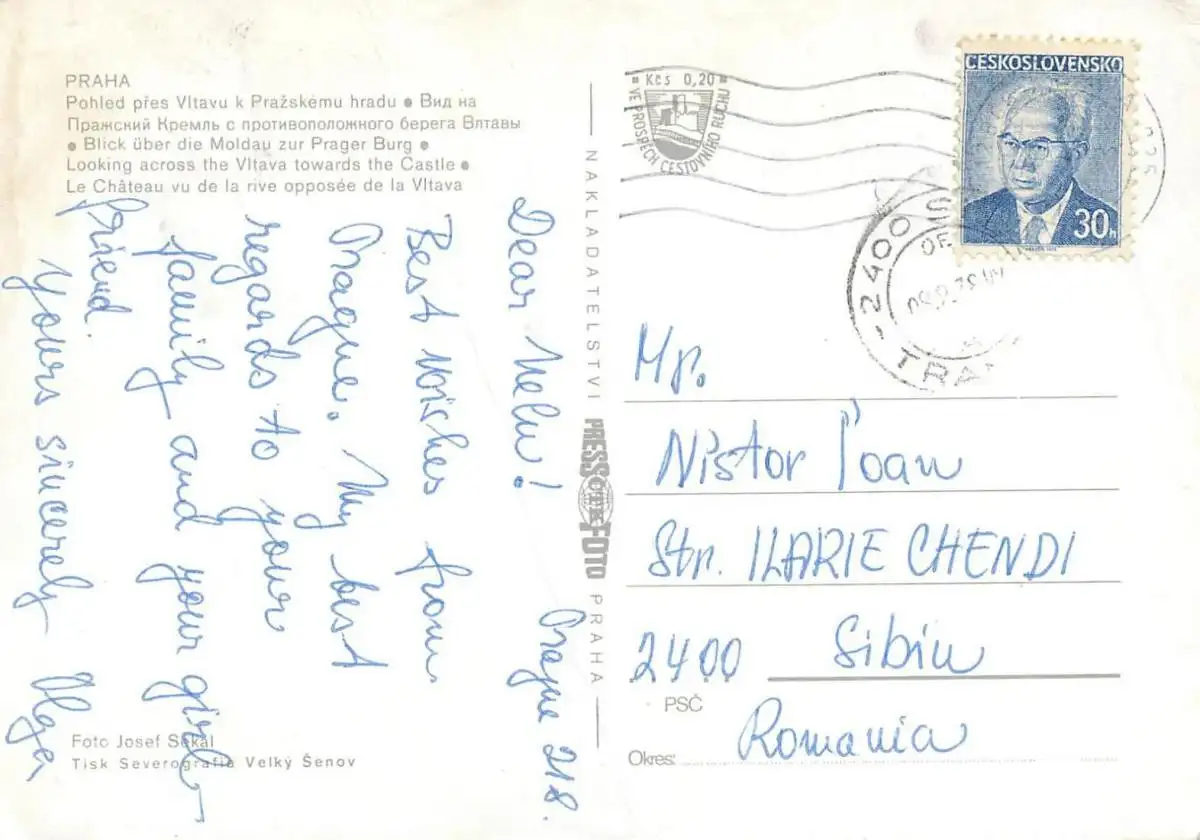 PRAHA
Pohled přes Vltavu k Pražskému hradu ● Вид на
Пражский Кремль с противоположного берега Влтавы
● Blick über die Moldau zur Prager Burg ●
Looking across the Vltava towards the Castle ●
Le Château vu de la rive opposée de la Vltava
Prague 21 8.
Dear Nelu!
Best wishes from
Prague. My best
regards to your
family and your girl-
friend.
Yours sincerely Olga
Foto Josef Sekal
Tisk Severografia Velký Šenov
NAKLADATELSTVÍ PRESSFOTO PRAHA
ČTK
Kčs 0,20
VE PROSPĚCH CESTOVNÍHO RUCHU
ČESKOSLOVENSKO
30h
2400
TRA
Mr.
Nistor Ioan
Str. ILARIE CHENDI
2400 Sibiu
PSČ
Romania
Okres: